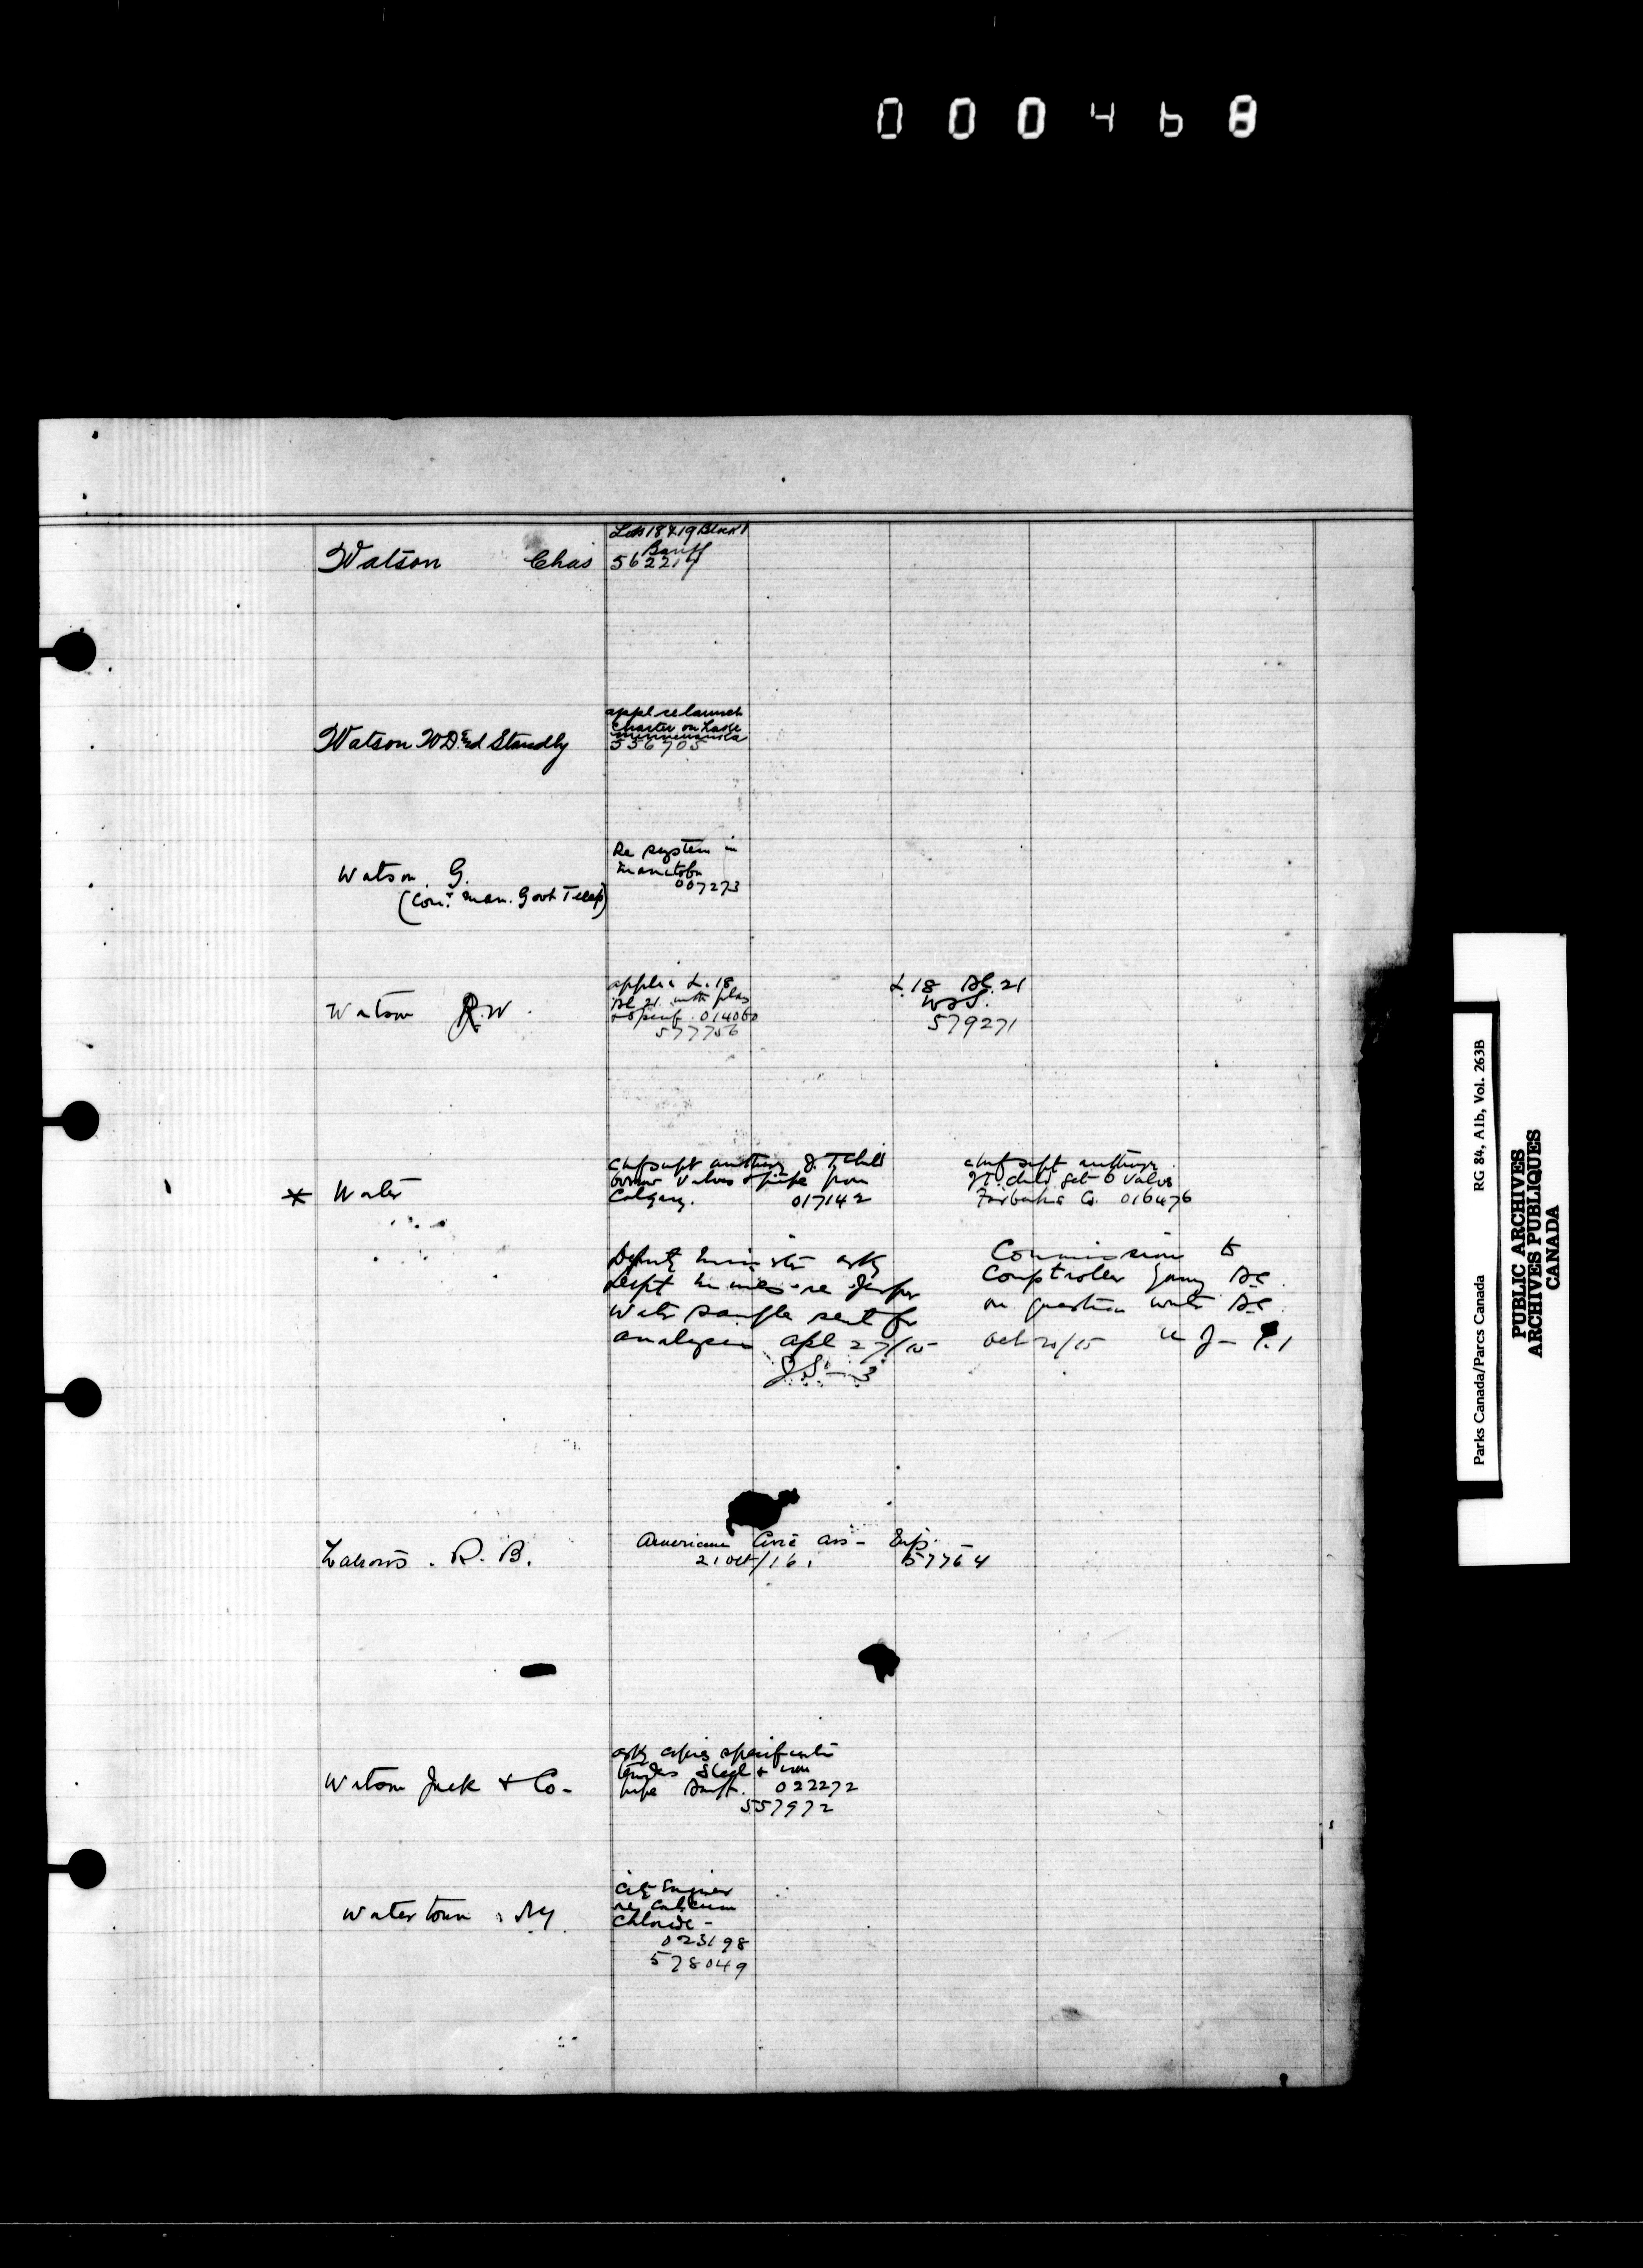 000468
Lots 18 & 19 Block 1
Banff
Watson Chas 562217
appl re launch
charter on Lake
Minnewanka
Watson W D and Standly 556705
Re system in
Manitoba
007273
Watson. G.
(Com. Man. Govt Telep)
applic L. 18
Bl 21 with plas
& specif. 014060
577756
Watson R. W.
L. 18 Bl. 21
579271
Chf supt authorizg J. T Child
borrow valves & pipe from
Calgary. 017142
* Water
chf supt authorizg
J T Child get 6 valves
Fairbanks Co. 016476
Deputy Minister asks
Dept Mines re Jasper
Water sample sent for
analysis apl 27/15
J. S. - 3
Commission to
Comptroller
on question water
Oct 20/15 U J - 9.1
Watrous. R. B.
American Civic Ass - Enf.
21 Oct/16. 57764
asks copies specificatn
tenders steel & iron
pipe Banff. 022272
557972
Watson Jack & Co -
City Engineer
re Calcium
Chloride -
023198
578049
Watertown. NY.
Parks Canada/Parcs Canada RG 84, A1b, Vol. 263B
PUBLIC ARCHIVES
ARCHIVES PUBLIQUES
CANADA